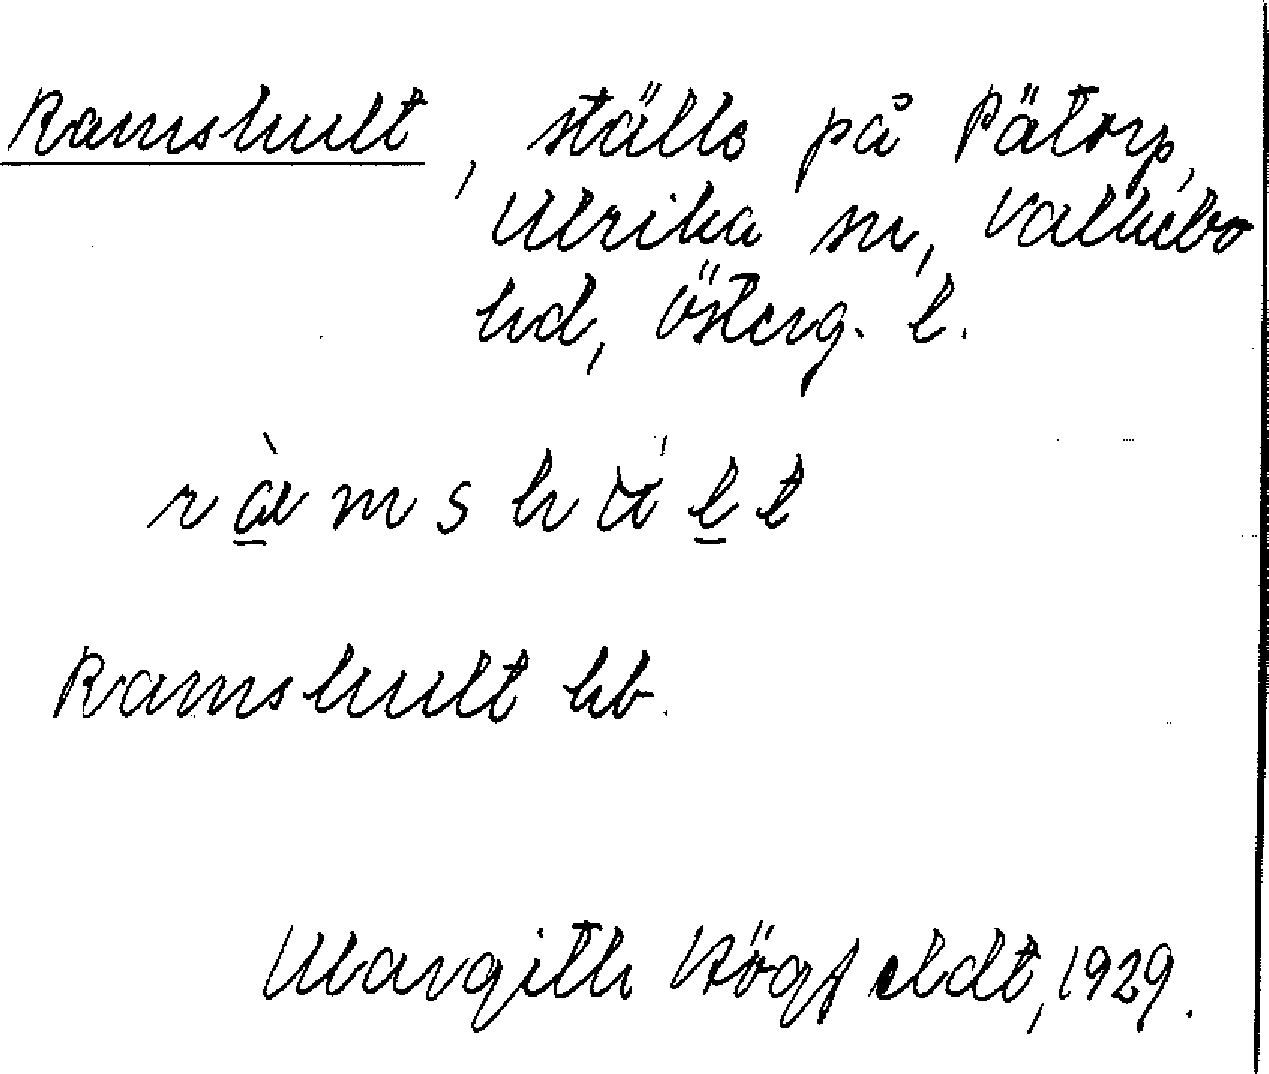 Ramshult, ställe på Pätorp,
Ulrika sn, Valkebo
hd, Österg. l.
ràmshúlt
Ramshult kb.
Margith Högfeldt, 1929.